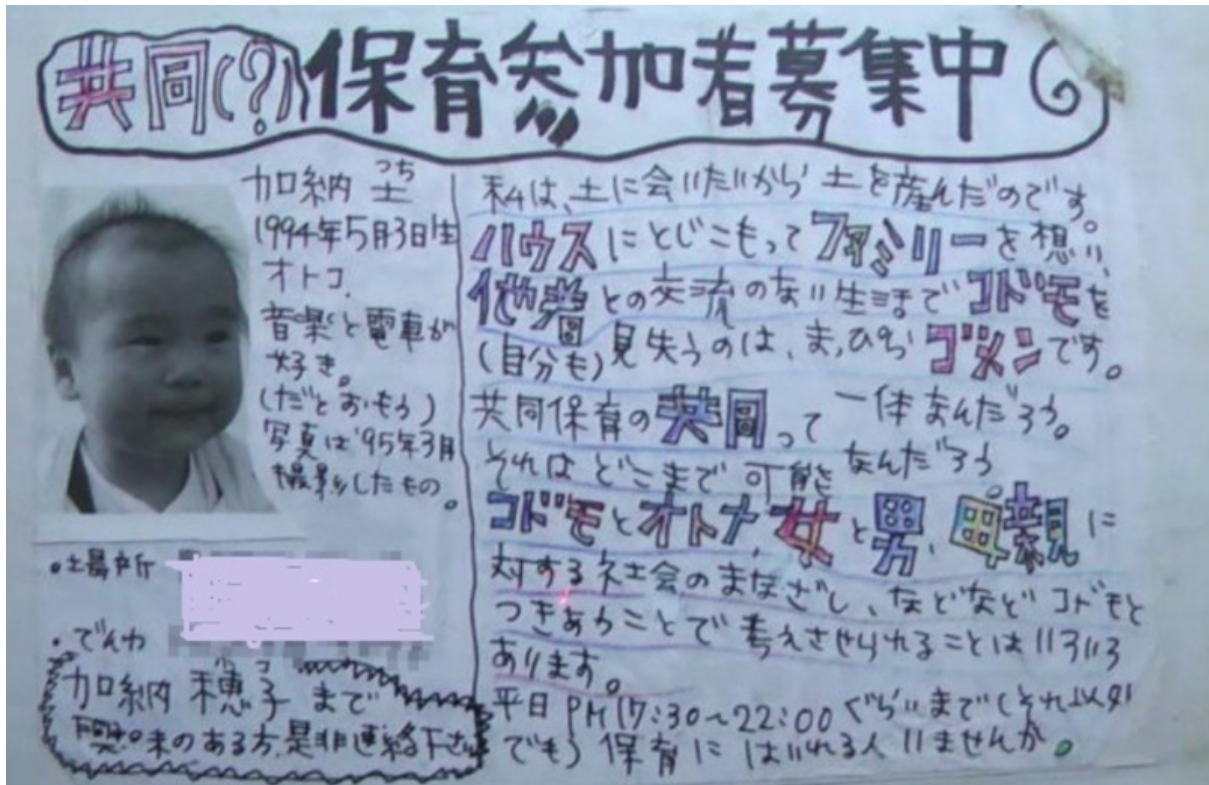 共同(?)保育参加者募集中
加納 土
つち
1994年5月3日生
オトコ.
音楽と電車が
好き。
(だとおもう)
写真は'95年3月
撮影したもの。
・場所
・でんわ
加納 穂子 まで
ほ こ
興味のある方、是非連絡下さい
私は、土に会いたいから 土を産んだのです。
ハウスにとじこもって ファミリーを想い、
他者との交流のない生活で コドモを
(自分も)見失うのは、まっぴら ゴメンです。
共同保育の共同って 一体なんだろう。
それは どこまで 可能なんだろう
コドモとオトナ、女と男、母親に
対する社会のまなざし、などなど コドモと
つきあうことで 考えさせられることはいろいろ
あります。
平日 PM17:30~22:00 ぐらいまで(それ以外
でも) 保育に はいれる人 いませんか。